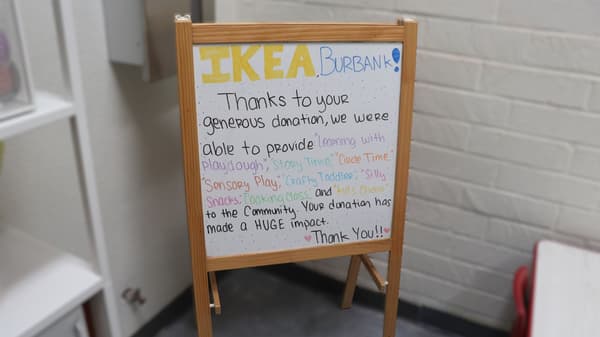 IKEA, BURBANK!
Thanks to your
generous donation, we were
able to provide "learning with
playdough", "Story Time", "Circle Time,"
"Sensory Play," "Crafty Toddler," "Silly
Snacks," "Cooking Class," and
to the Community. Your donation has
made a HUGE impact.
Thank You!!